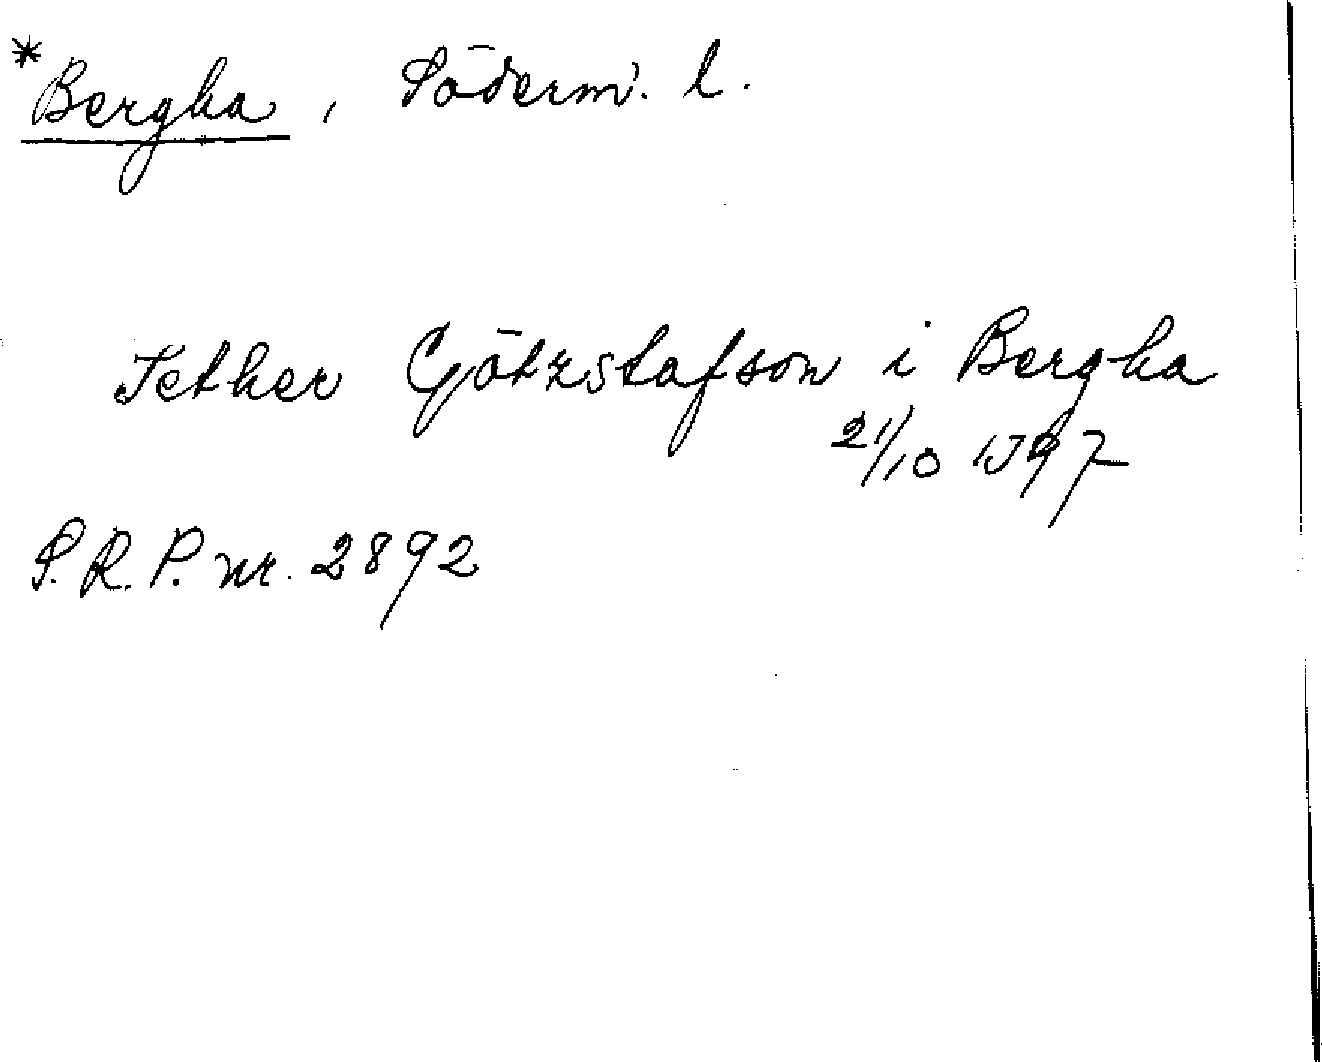 *Bergha, Söderm. l.
Jether Götzstafson i Bergha
21/10 1397
S.R.P. nr. 2892